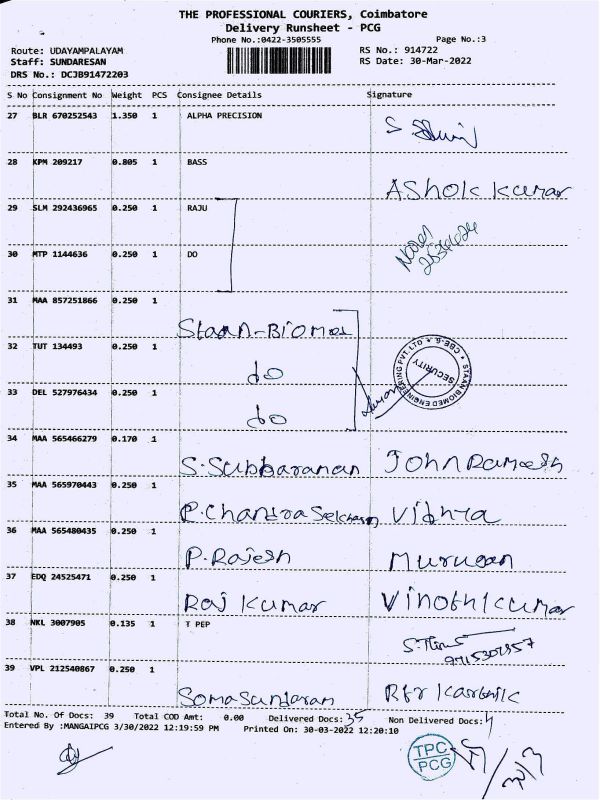 THE PROFESSIONAL COURIERS, Coimbatore
Delivery Runsheet - PCG
Phone No.:0422-3505555 Page No.:3
Route: UDAYAMPALAYAM RS No.: 914722
Staff: SUNDARESAN RS Date: 30-Mar-2022
DRS No.: DCJB91472203
S No Consignment No Weight PCS Consignee Details Signature
27 BLR 670252543 1.350 1 ALPHA PRECISION
28 KPM 209217 0.805 1 BASS
Ashok kumar
29 SLM 292436965 0.250 1 RAJU
30 MTP 1144636 0.250 1 DO
31 MAA 857251866 0.250 1
Staan-Biomed
32 TUT 134493 0.250 1
do
STAAN BIOMED ENGINEERING PVT. LTD * CBE-6 *
SECURITY
33 DEL 527976434 0.250 1
do
34 MAA 565466279 0.170 1
S.Subbaraman John Ramesh
35 MAA 565970443 0.250 1
P.Chandra Sekharan Vidhya
36 MAA 565480435 0.250 1
P.Rajesh Murugan
37 EDQ 24525471 0.250 1
Raj kumar Vinothkumar
38 NKL 3007905 0.135 1 T PEP
39 VPL 212540867 0.250 1
Somasundaram Karthik
Total No. Of Docs: 39 Total COD Amt: 0.00 Delivered Docs: 35 Non Delivered Docs: 4
Entered By :MANGAIPCG 3/30/2022 12:19:59 PM Printed On: 30-03-2022 12:20:10
TPC
PCG